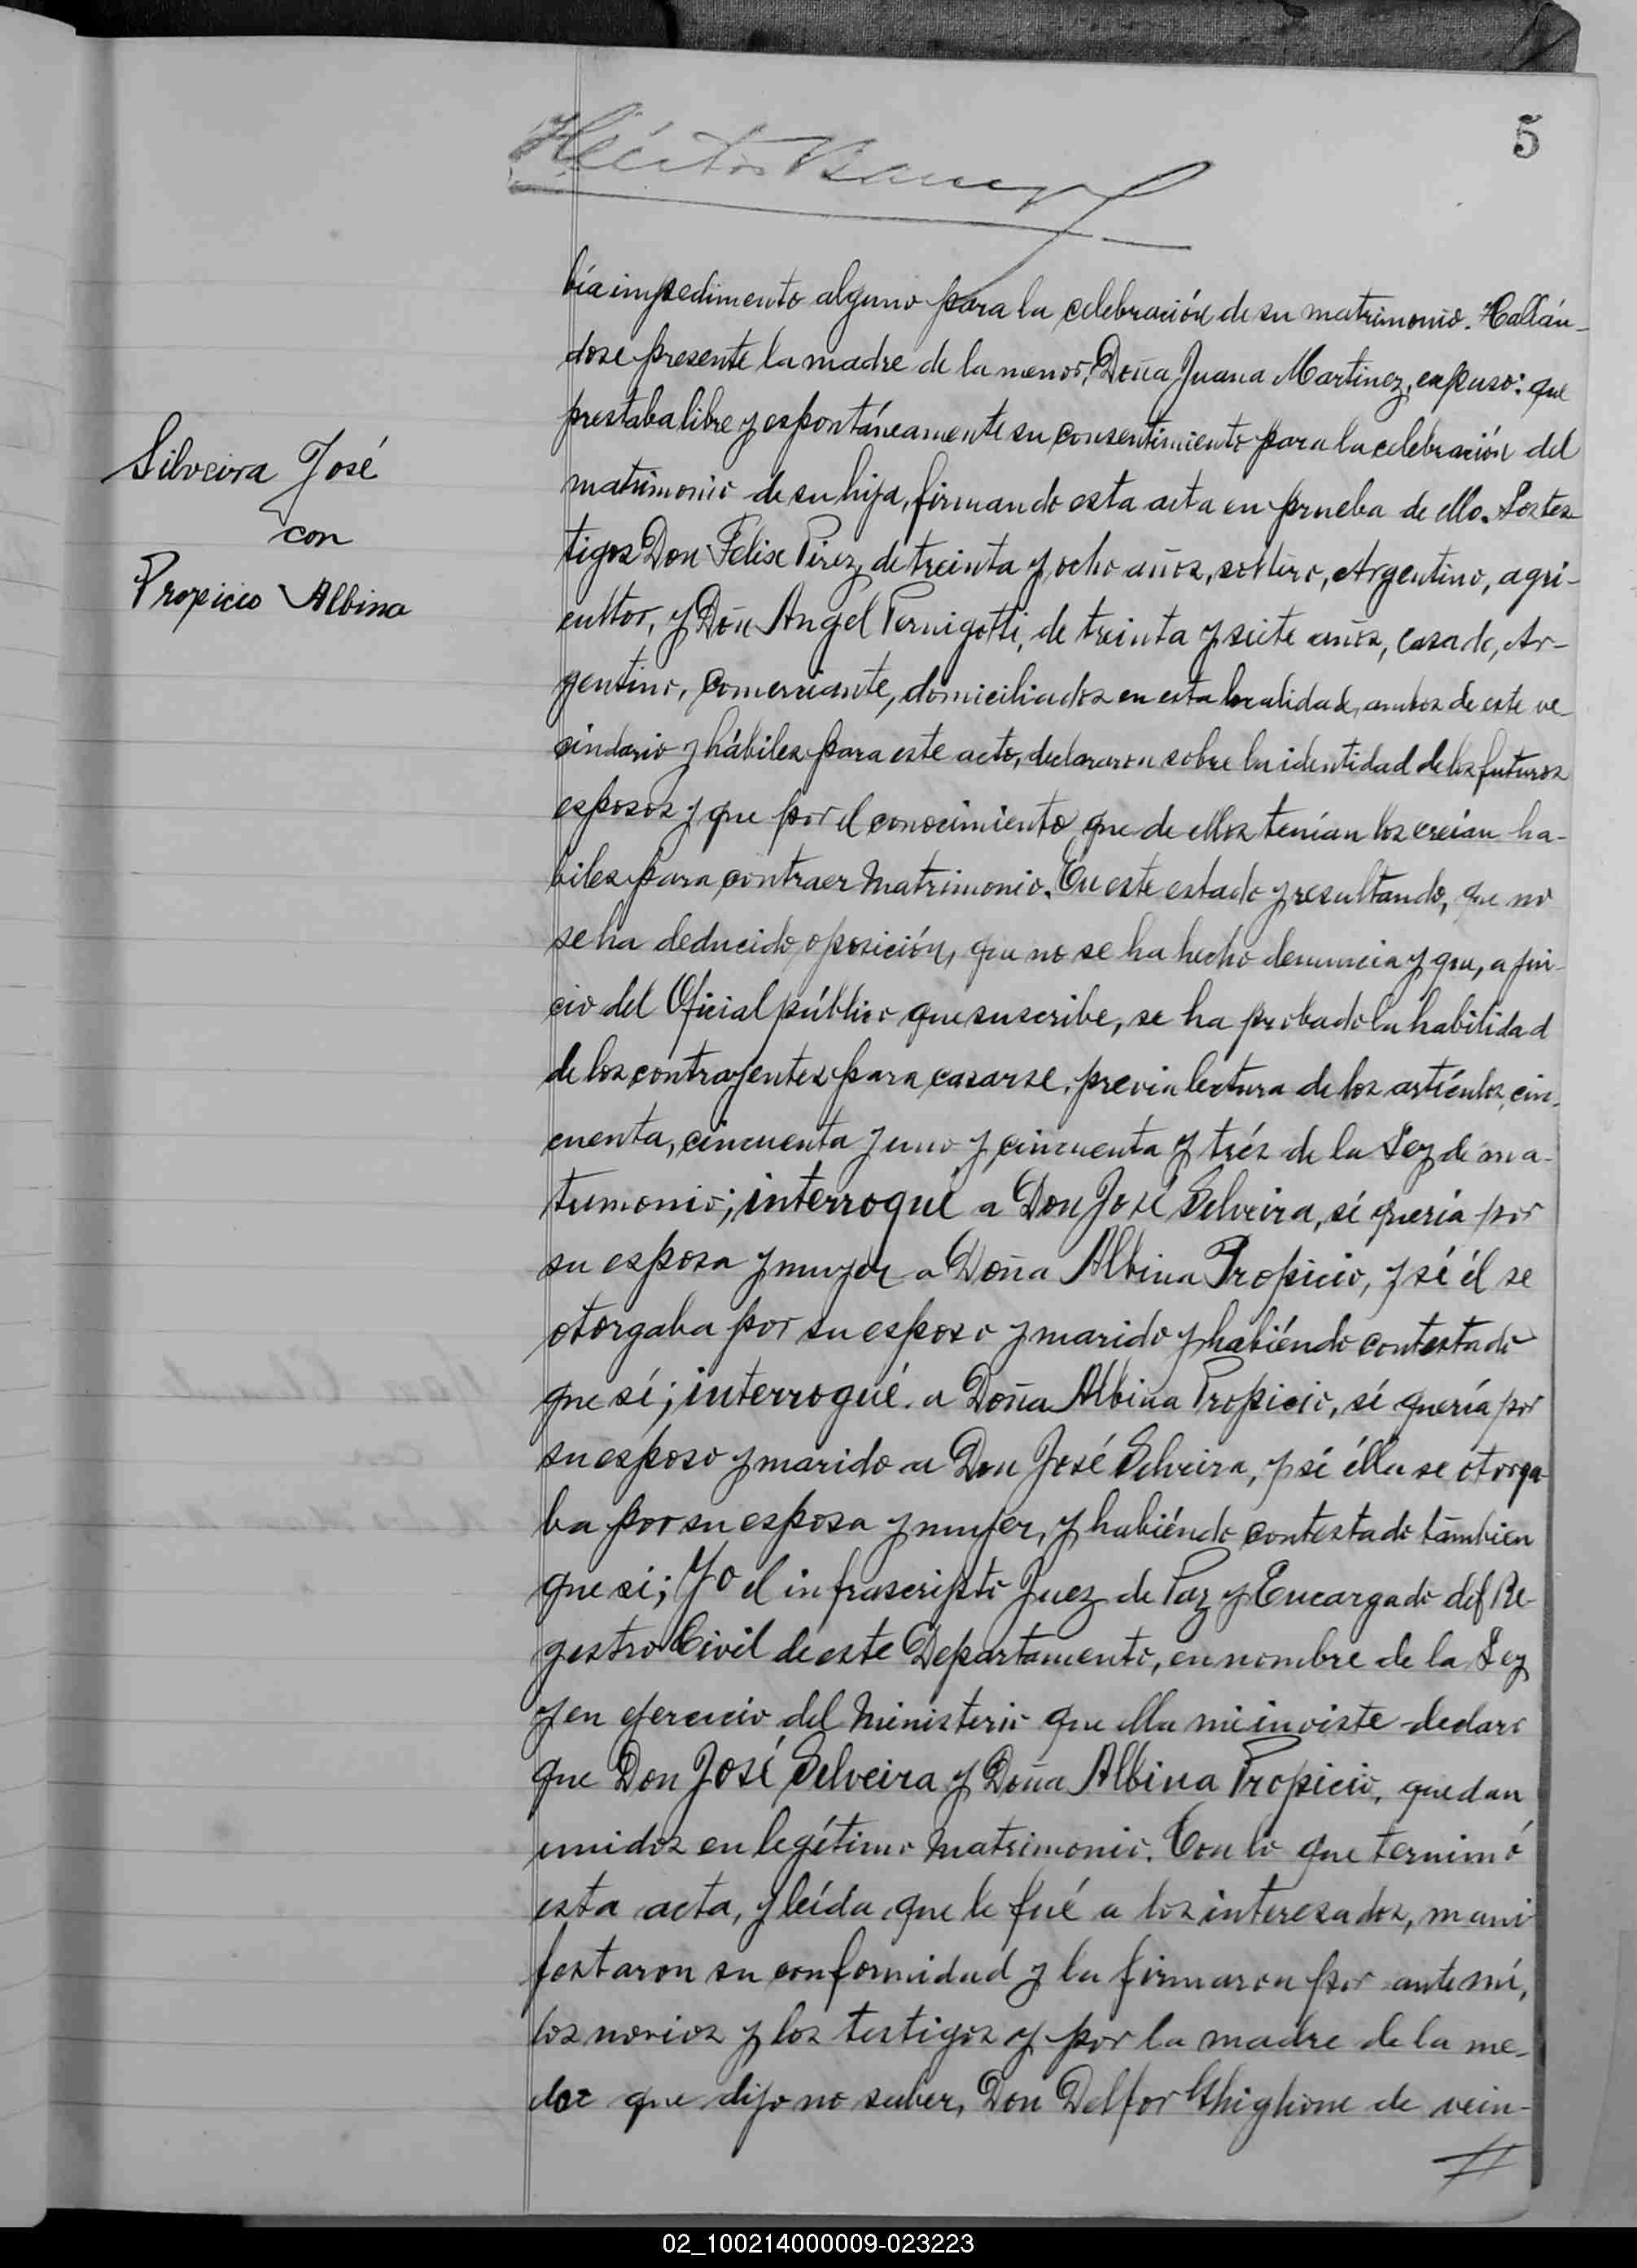 5
Héctor
bía impedimento alguno para la celebración de su matrimonio. Hallán-
dose presente la madre de la menor, Doña Juana Martinez, expuso: que
prestaba libre y espontáneamente su consentimiento para la celebración del
matrimonio de su hija, firmando esta acta en prueba de ello. Los tes-
tigos Don Felix Pirez, de treinta y ocho años, soltero, Argentino, agri-
cultor, y Don Angel Pernigotti, de treinta y siete años, casado, Ar-
gentino, comerciante, domiciliados en esta localidad, ambos de este ve-
cindario y hábiles para este acto, declararon sobre la identidad de los futuros
esposos y que por el conocimiento que de ellos tenían los creían ha-
biles para contraer matrimonio. En este estado y resultando, que no
se ha deducido oposición, que no se ha hecho denuncia y que, a jui-
cio del Oficial público que suscribe, se ha probado la habilidad
de los contrayentes para casarse, previa lectura de los artículos cin-
cuenta, cincuenta y uno y cincuenta y trés de la Ley de ma-
trimonio; interroqué a Don José Selveira, sí quería por
su esposa y mujer a Doña Albina Propicio, y sí él se
otorgaba por su esposo y marido y habiéndo contestado
que sí; interrogué a Doña Albina Propicio, sí quería por
su esposo y marido a Don José Selveira, y sí élla se otorga-
ba por su esposa y mujer, y habiéndo contestado tambien
que si; Yo el infrascripto Juez de Paz y Encargado del Re-
gestro Civil de este Departamento, en nombre de la Ley
y en ejercicio del Ministerio que ella mi inviste declaro
que Don José Selveira y Doña Albina Propicio, quedan
unidos en legítimo matrimonio. Con lo que terminó
esta acta, y leída que le fué a los interesados, mani
festaron su conformidad y la firmaron por ante mí,
los novios y los testigos y por la madre de la me-
que dijo no saber, Don Delfor Ghiglione de vein-
Silveira José
con
Propicio Albina
02_100214000009-023223